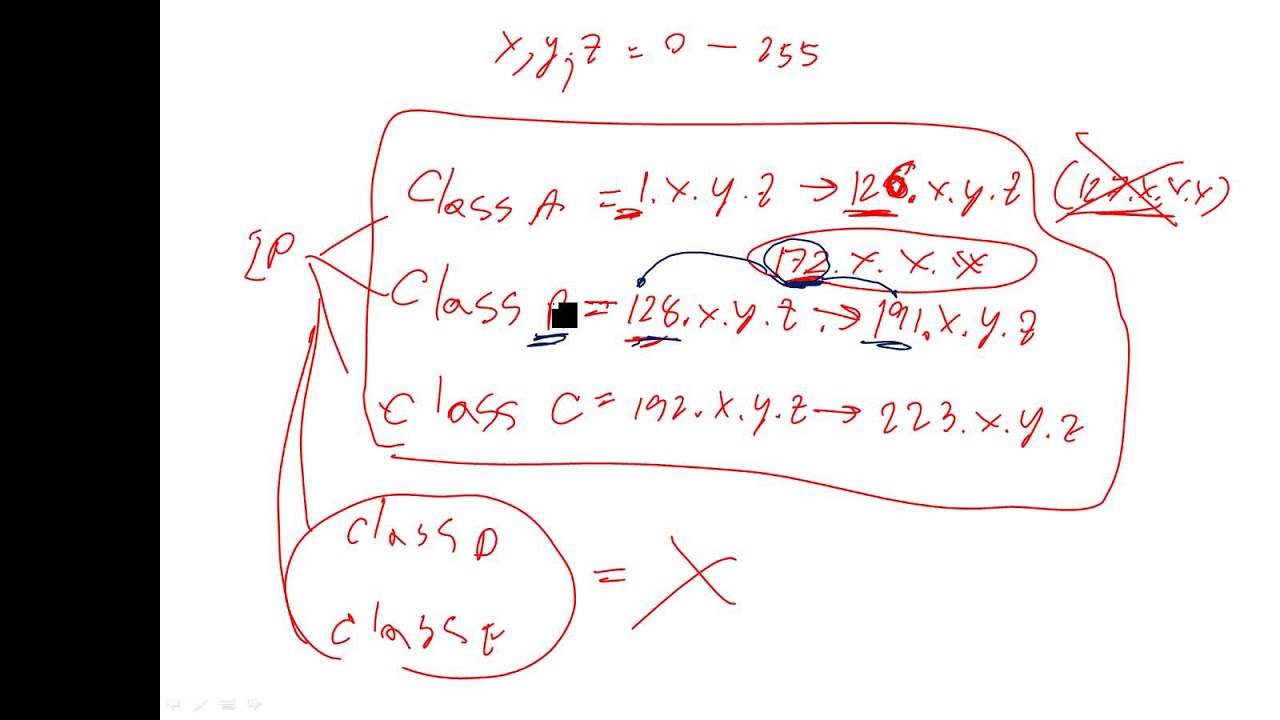 x, y, z = 0 - 255
Class A = 1.x.y.z → 126.x.y.z (127.x.x.x)
172.x.x.x
IP
Class B = 128.x.y.z. → 191.x.y.z
Class C = 192.x.y.z → 223.x.y.z
class D
class E
= X